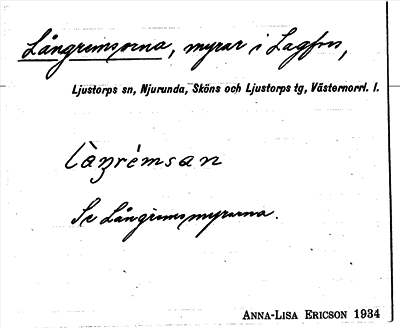 Långrimsorna, myrar i Lagfors,
Ljustorps sn, Njurunda, Sköns och Ljustorps tg, Västernorrl. l.
làŋrèmsan
Se Långrimsmyrarna.
ANNA-LISA ERICSON 1934